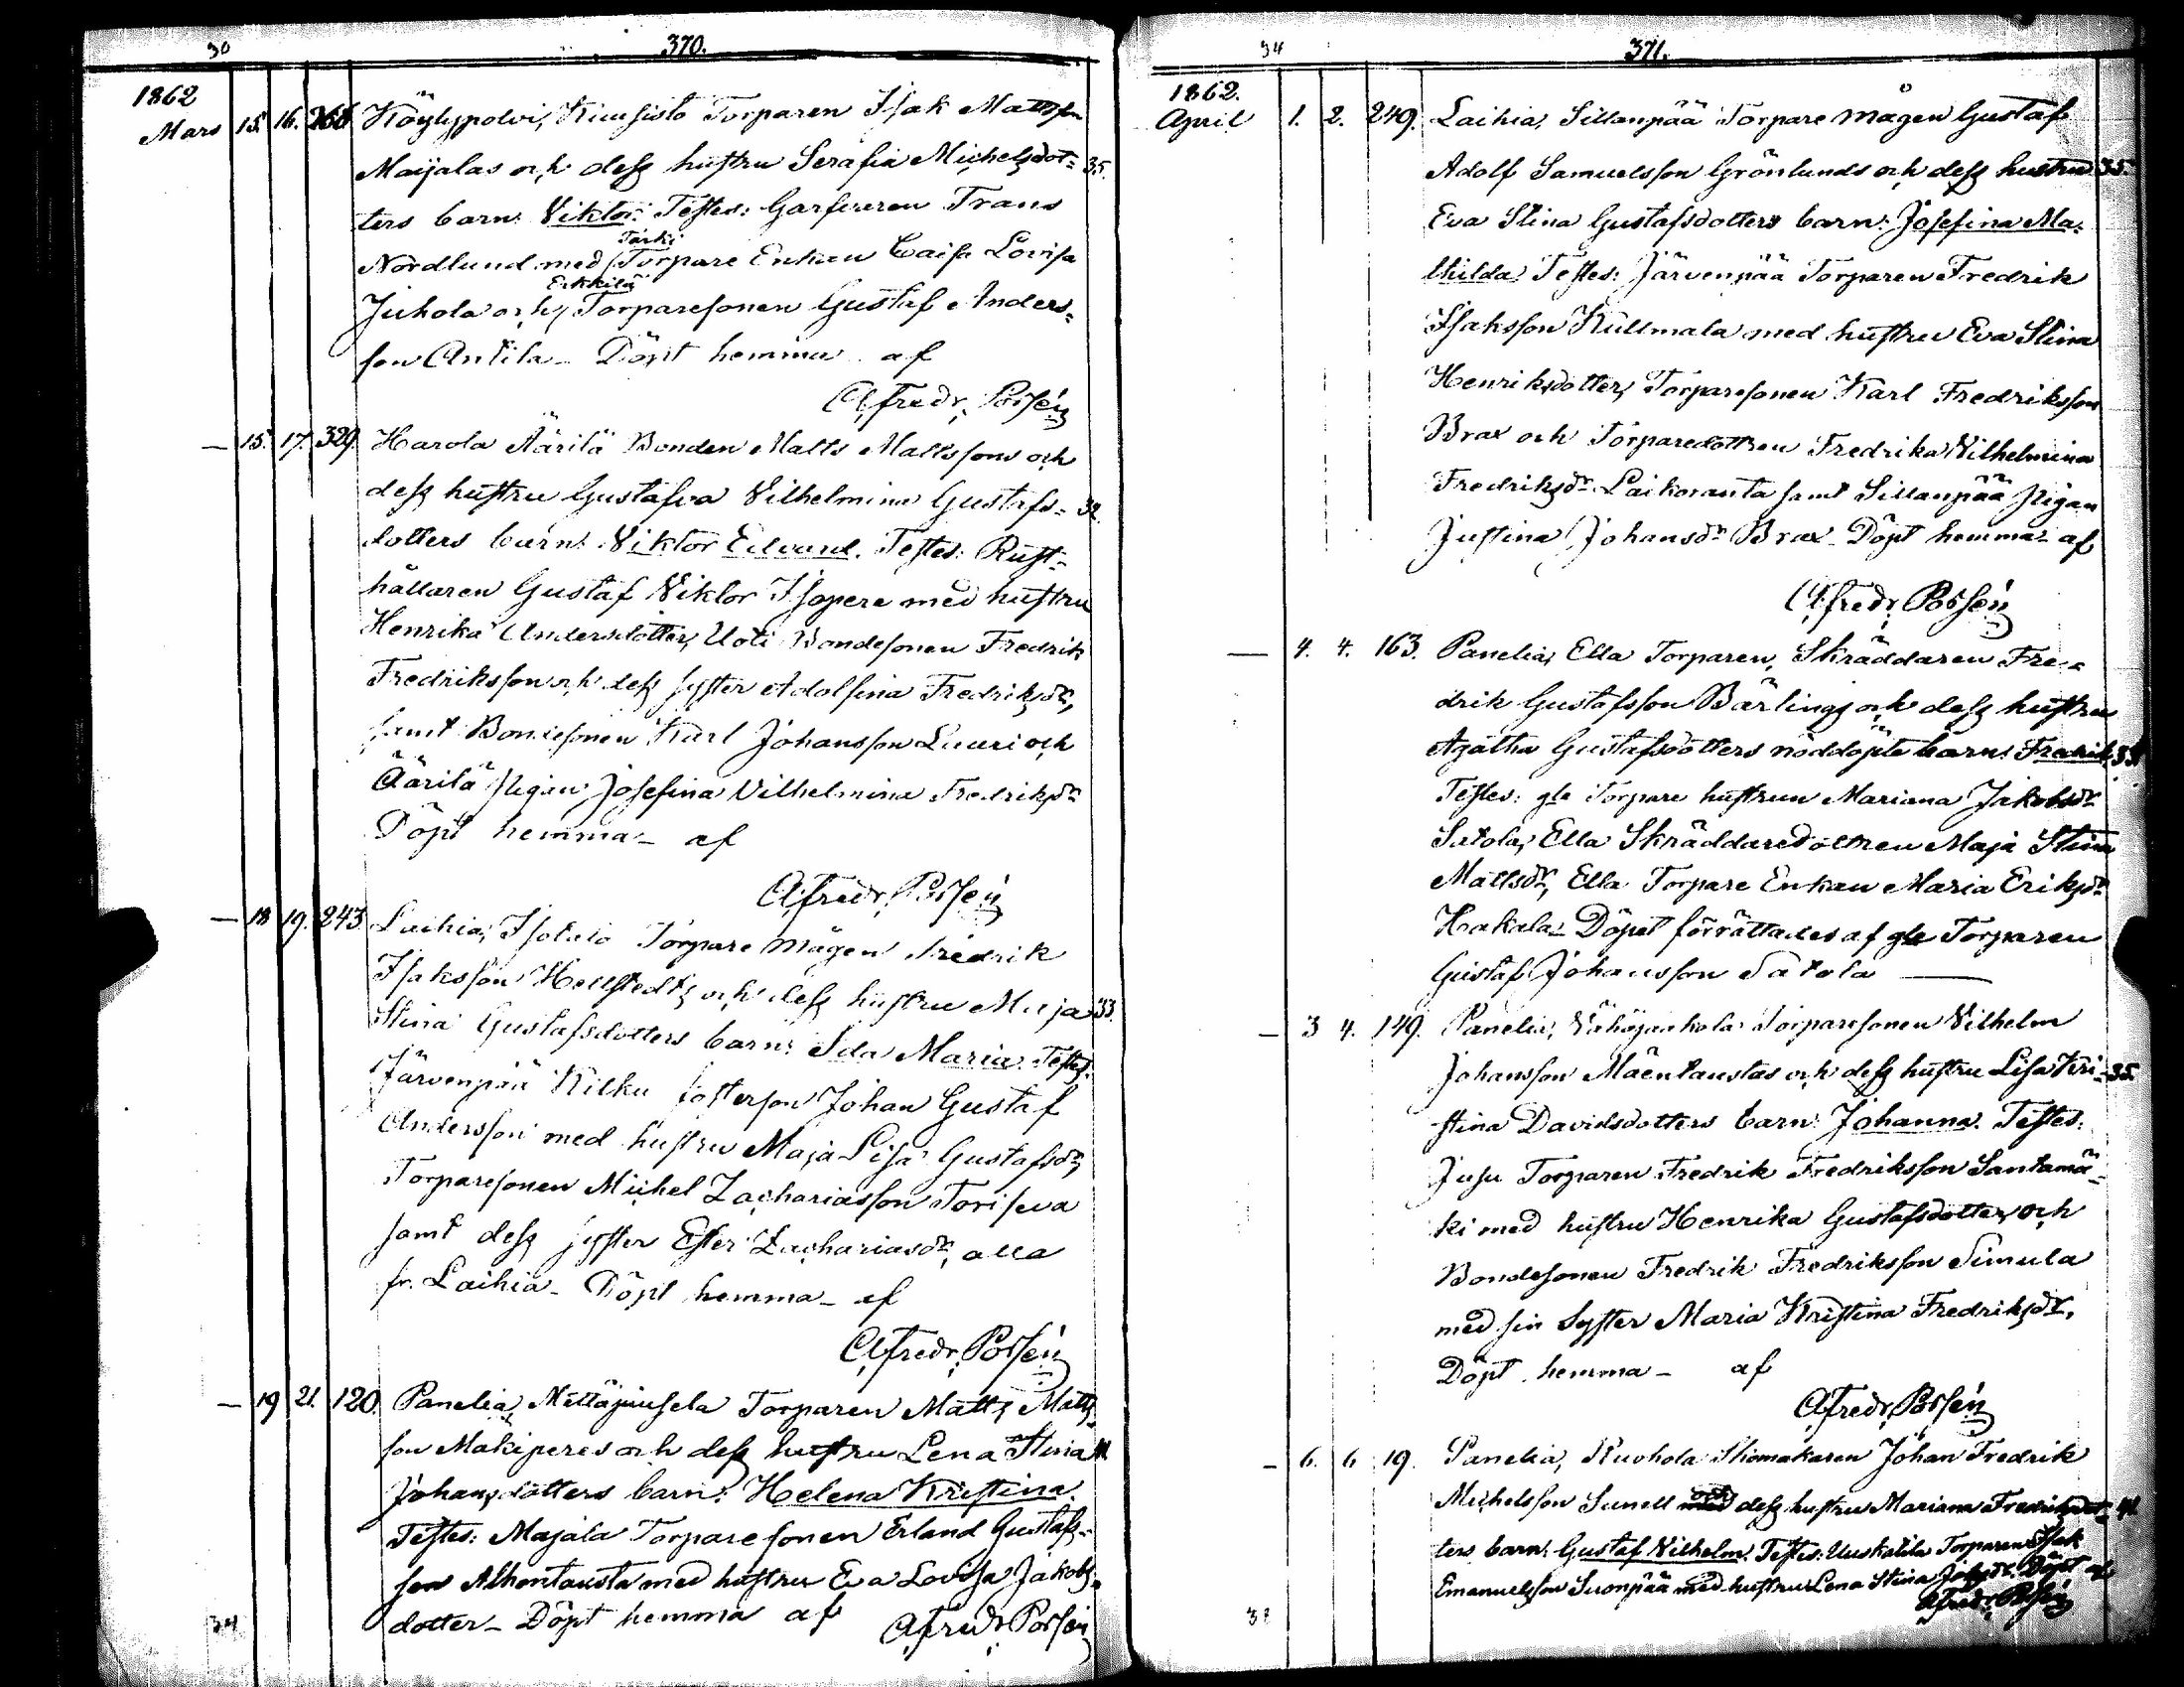 30
370.
1862
Mars 15. 16. 266. Köylypolvi, Kuusisto Torparen Isak Mattsson
Maijalas och dess hustru Serafia Michelsdot= 35.
ters barn: Viktor. Testes: Garfveren Frans
Tarki
Nordlund med Torpare Enkan Caisa Lovisa
Erkkilä
Juhola och Torparesonen Gustaf Anders=
son Antila _ Döpt hemma af
Alfredr. Possén
— 15. 17. 329. Harola Äärilä Bonden Matts Mattssons och
dess hustru Gustafva Vilhelmina Gustafs= 32.
dotters barn: Viktor Edvard. Testes: Rust=
hållaren Gustaf Viktor Isopere med hustru
Henrika Andersdotter, Uoti Bondesonen Fredrik
Fredriksson och dess syster Adolfina Fredriksdr,
samt Bondesonen Karl Johansson Luuri och
Äärilä Pigan Josefina Vilhelmina Fredriksdr
Döpt hemma _ af
Alfredr. Possén
— 18 19. 243. Laihia, Isotalo Torpare mågen Fredrik
Isaksson Hellstedts och dess hustru Maja 33.
Stina Gustafsdotters barn: Ida Maria. Testes:
Järvenpää Kilku fosterson Johan Gustaf
Andersson med hustru Maja Lisa Gustafsdr,
Torparesonen Michel Zachariasson Toriseva
samt dess syster Ester Zachariasdr, alla
fr. Laihia _ Döpt hemma _ af
Alfredr. Possén
— 19 21. 120. Panelia, Mettäjuusela Torparen Matts Matts
son Mäkiperes och dess hustru Lena Stina
Johansdotters barn: Helena Kristina.
Testes: Majala Torparesonen Erland Gustafs=
son Alhontausta med hustru Eva Lovisa Jakobs=
dotter _ Döpt hemma af Alfredr Possén
34
34
371.
1862.
April 1. 2. 249. Laihia, Sillanpää Torpare mågen Gustaf
Adolf Samuelsson Grönlunds och dess hustru 35.
Eva Stina Gustafsdotters barn: Josefina Ma=
thilda. Testes: Järvenpää Torparen Fredrik
Isaksson Kullmala med hustru Eva Stina
Henriksdotter, Torparesonen Karl Fredriksson
Brax och Torparedottren Fredrika Vilhelmina
Fredriksdr. Laikoranta samt Sillanpää Pigan
Justina Johansdr Brax _ Döpt hemma _ af
Alfredr. Possén
— 4. 4. 163. Panelia, Ella Torparen, Skräddaren Fre=
drik Gustafsson Bärlings och dess hustru
Agatha Gustafsdotters nöddöpte barn: Fredrik.
Testes: gla Torpare hustrun Mariana Jakobsdr
Satola, Ella Skräddaredottren Maja Stina
Mattsdr, Ella Torpare Enkan Maria Eriksdr
Hakala _ Döpet förrättades af gle Torparen
Gustaf Johansson Satola —
— 3 4. 149. Panelia, Vähäjaakola Torparesonen Vilhelm
Johansson Mäentaustas och dess hustru Lisa Kri= 35.
stina Davidsdotters barn: Johanna. Testes:
Jusu Torparen Fredrik Fredriksson Santamä=
ki med hustru Henrika Gustafsdotter, och
Bondesonen Fredrik Fredriksson Simula
med sin Syster Maria Kristina Fredriksdr.
Döpt hemma _ af
Alfredr. Possén
— 6. 6 19. Panelia, Ruohola Skomakaren Johan Fredrik
och
Michelsson Sunell med dess hustru Mariana Fredriksdot= 41.
ters barn: Gustaf Vilhelm. Testes: Uuskatila Torparen Isak
Emanuelsson Suonpää med hustru Lena Stina Döpt af
Alfredr. Possén
38